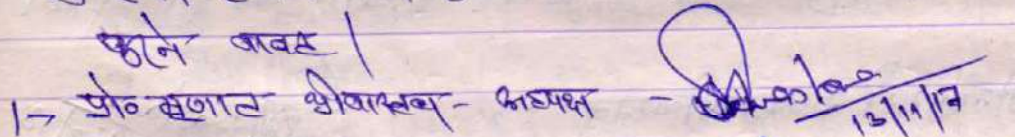 करने बावत |
1→ प्रो० मृणाल श्रीवास्तव - अध्यक्ष -
13/11/17